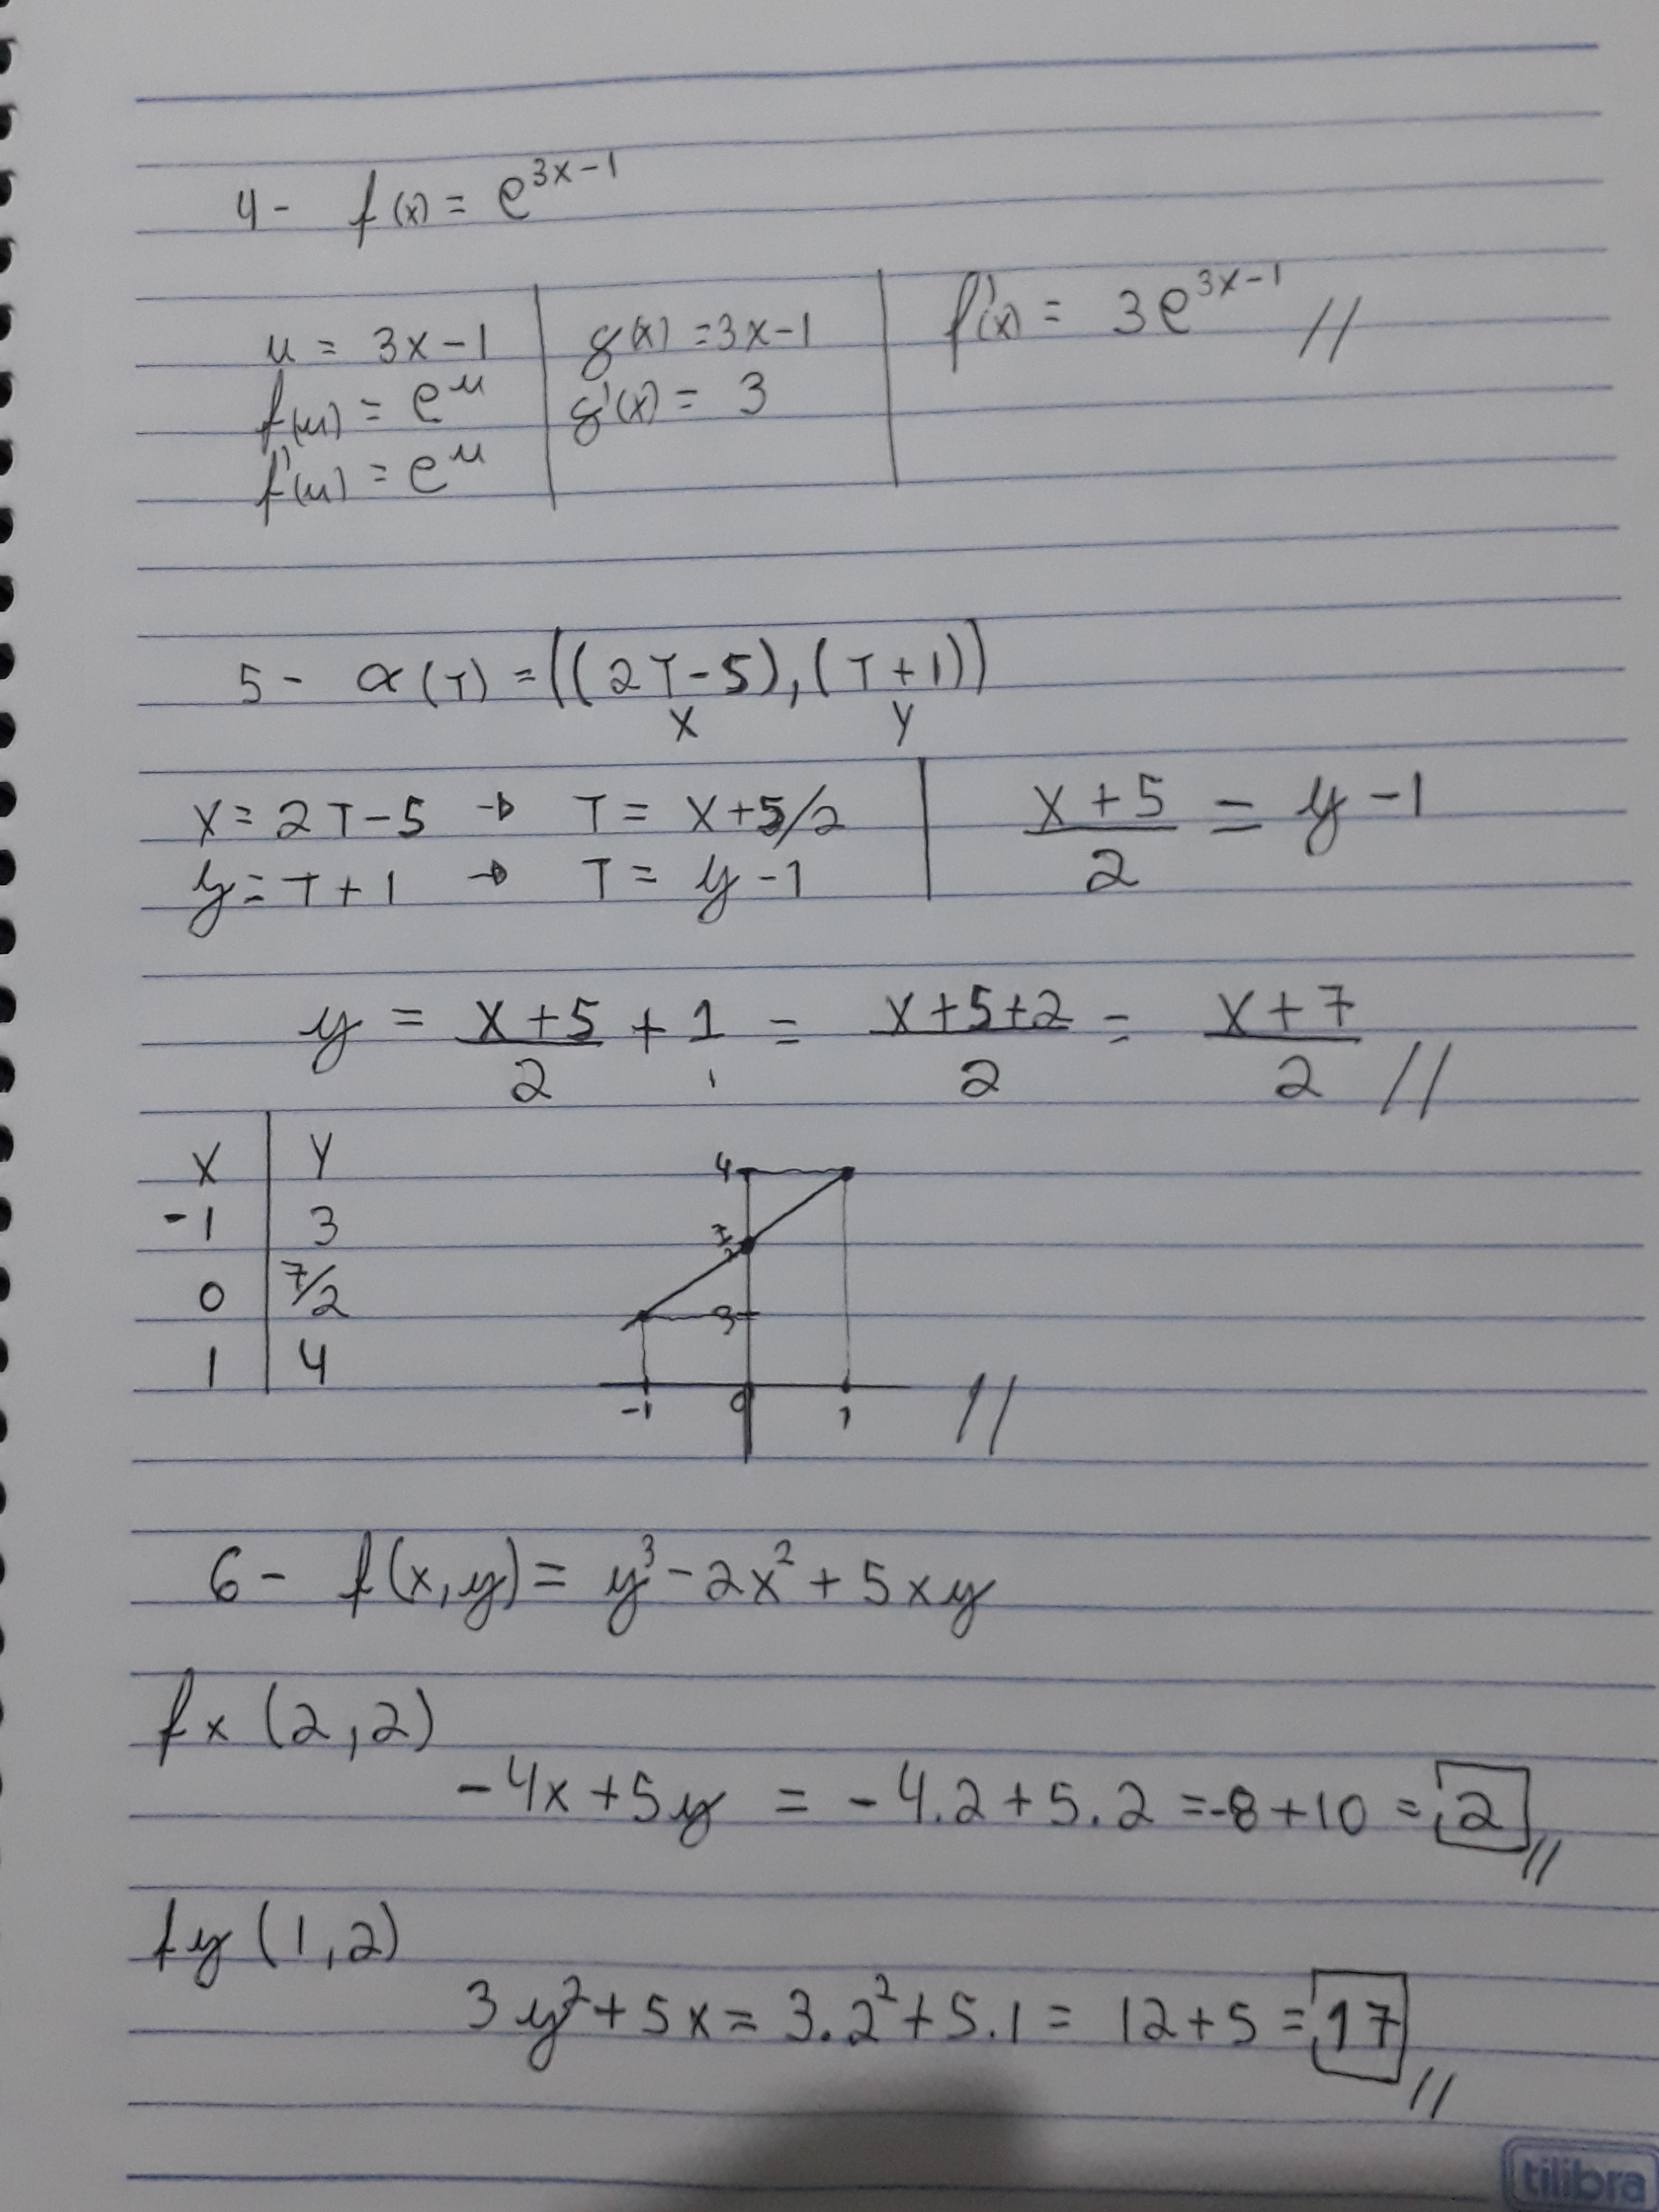 4- f(x) = e^{3x-1}
u = 3x-1 | g(x) = 3x-1 | f'(x) = 3e^{3x-1} //
f(u) = e^u | g'(x) = 3
f'(u) = e^u
5- α(T) = ((2T-5),(T+1))
x y
x = 2T-5 → T = x+5/2 | \frac{x+5}{2} = y-1
y = T+1 → T = y-1
y = \frac{x+5}{2} + \frac{1}{1} = \frac{x+5+2}{2} = \frac{x+7}{2} //
x | y
-1 | 3
0 | 7/2
1 | 4
4
7/2
3
-1 0 1 //
6- f(x,y) = y³-2x²+5xy
fx (2,2)
-4x+5y = -4.2+5.2 =-8+10 = 2 //
fy (1,2)
3y²+5x = 3.2²+5.1 = 12+5 = 17 //
tilibra